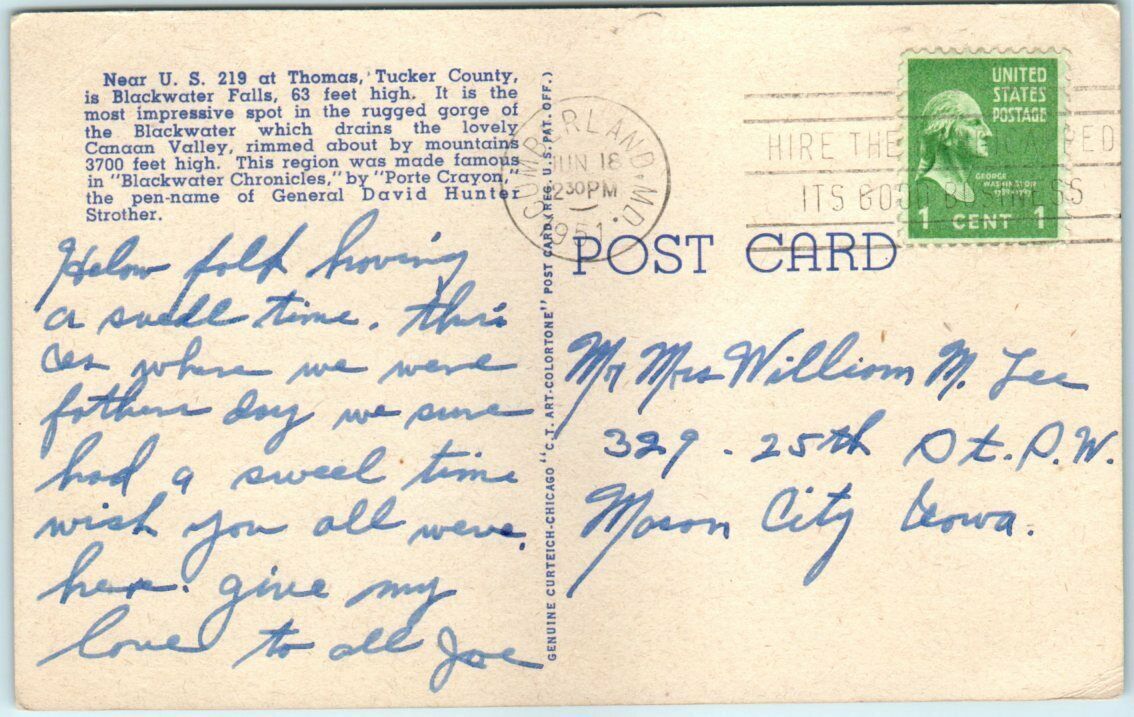 Near U. S. 219 at Thomas, Tucker County,
is Blackwater Falls, 63 feet high. It is the
most impressive spot in the rugged gorge of
the Blackwater which drains the lovely
Canaan Valley, rimmed about by mountains
3700 feet high. This region was made famous
in "Blackwater Chronicles," by "Porte Crayon,"
the pen-name of General David Hunter
Strother.
Helow folk having
a swell time. this
is where we were
fathers day we sure
had a sweel time
wish you all were.
here. give my
love to all Joe
GENUINE CURTEICH-CHICAGO "C.T. ART-COLORTONE" POST CARD (REG. U.S. PAT. OFF.)
CUMBERLAND, MD.
JUN 18
2 30 PM
1951
HIRE THE
ITS GOOD BUSINESS
UNITED
STATES
POSTAGE
GEORGE
WASHINGTON
1789-1797
1 CENT 1
POST CARD
Mr Mrs William M. Lee
329 - 25th St. S.W.
Mason City Iowa.